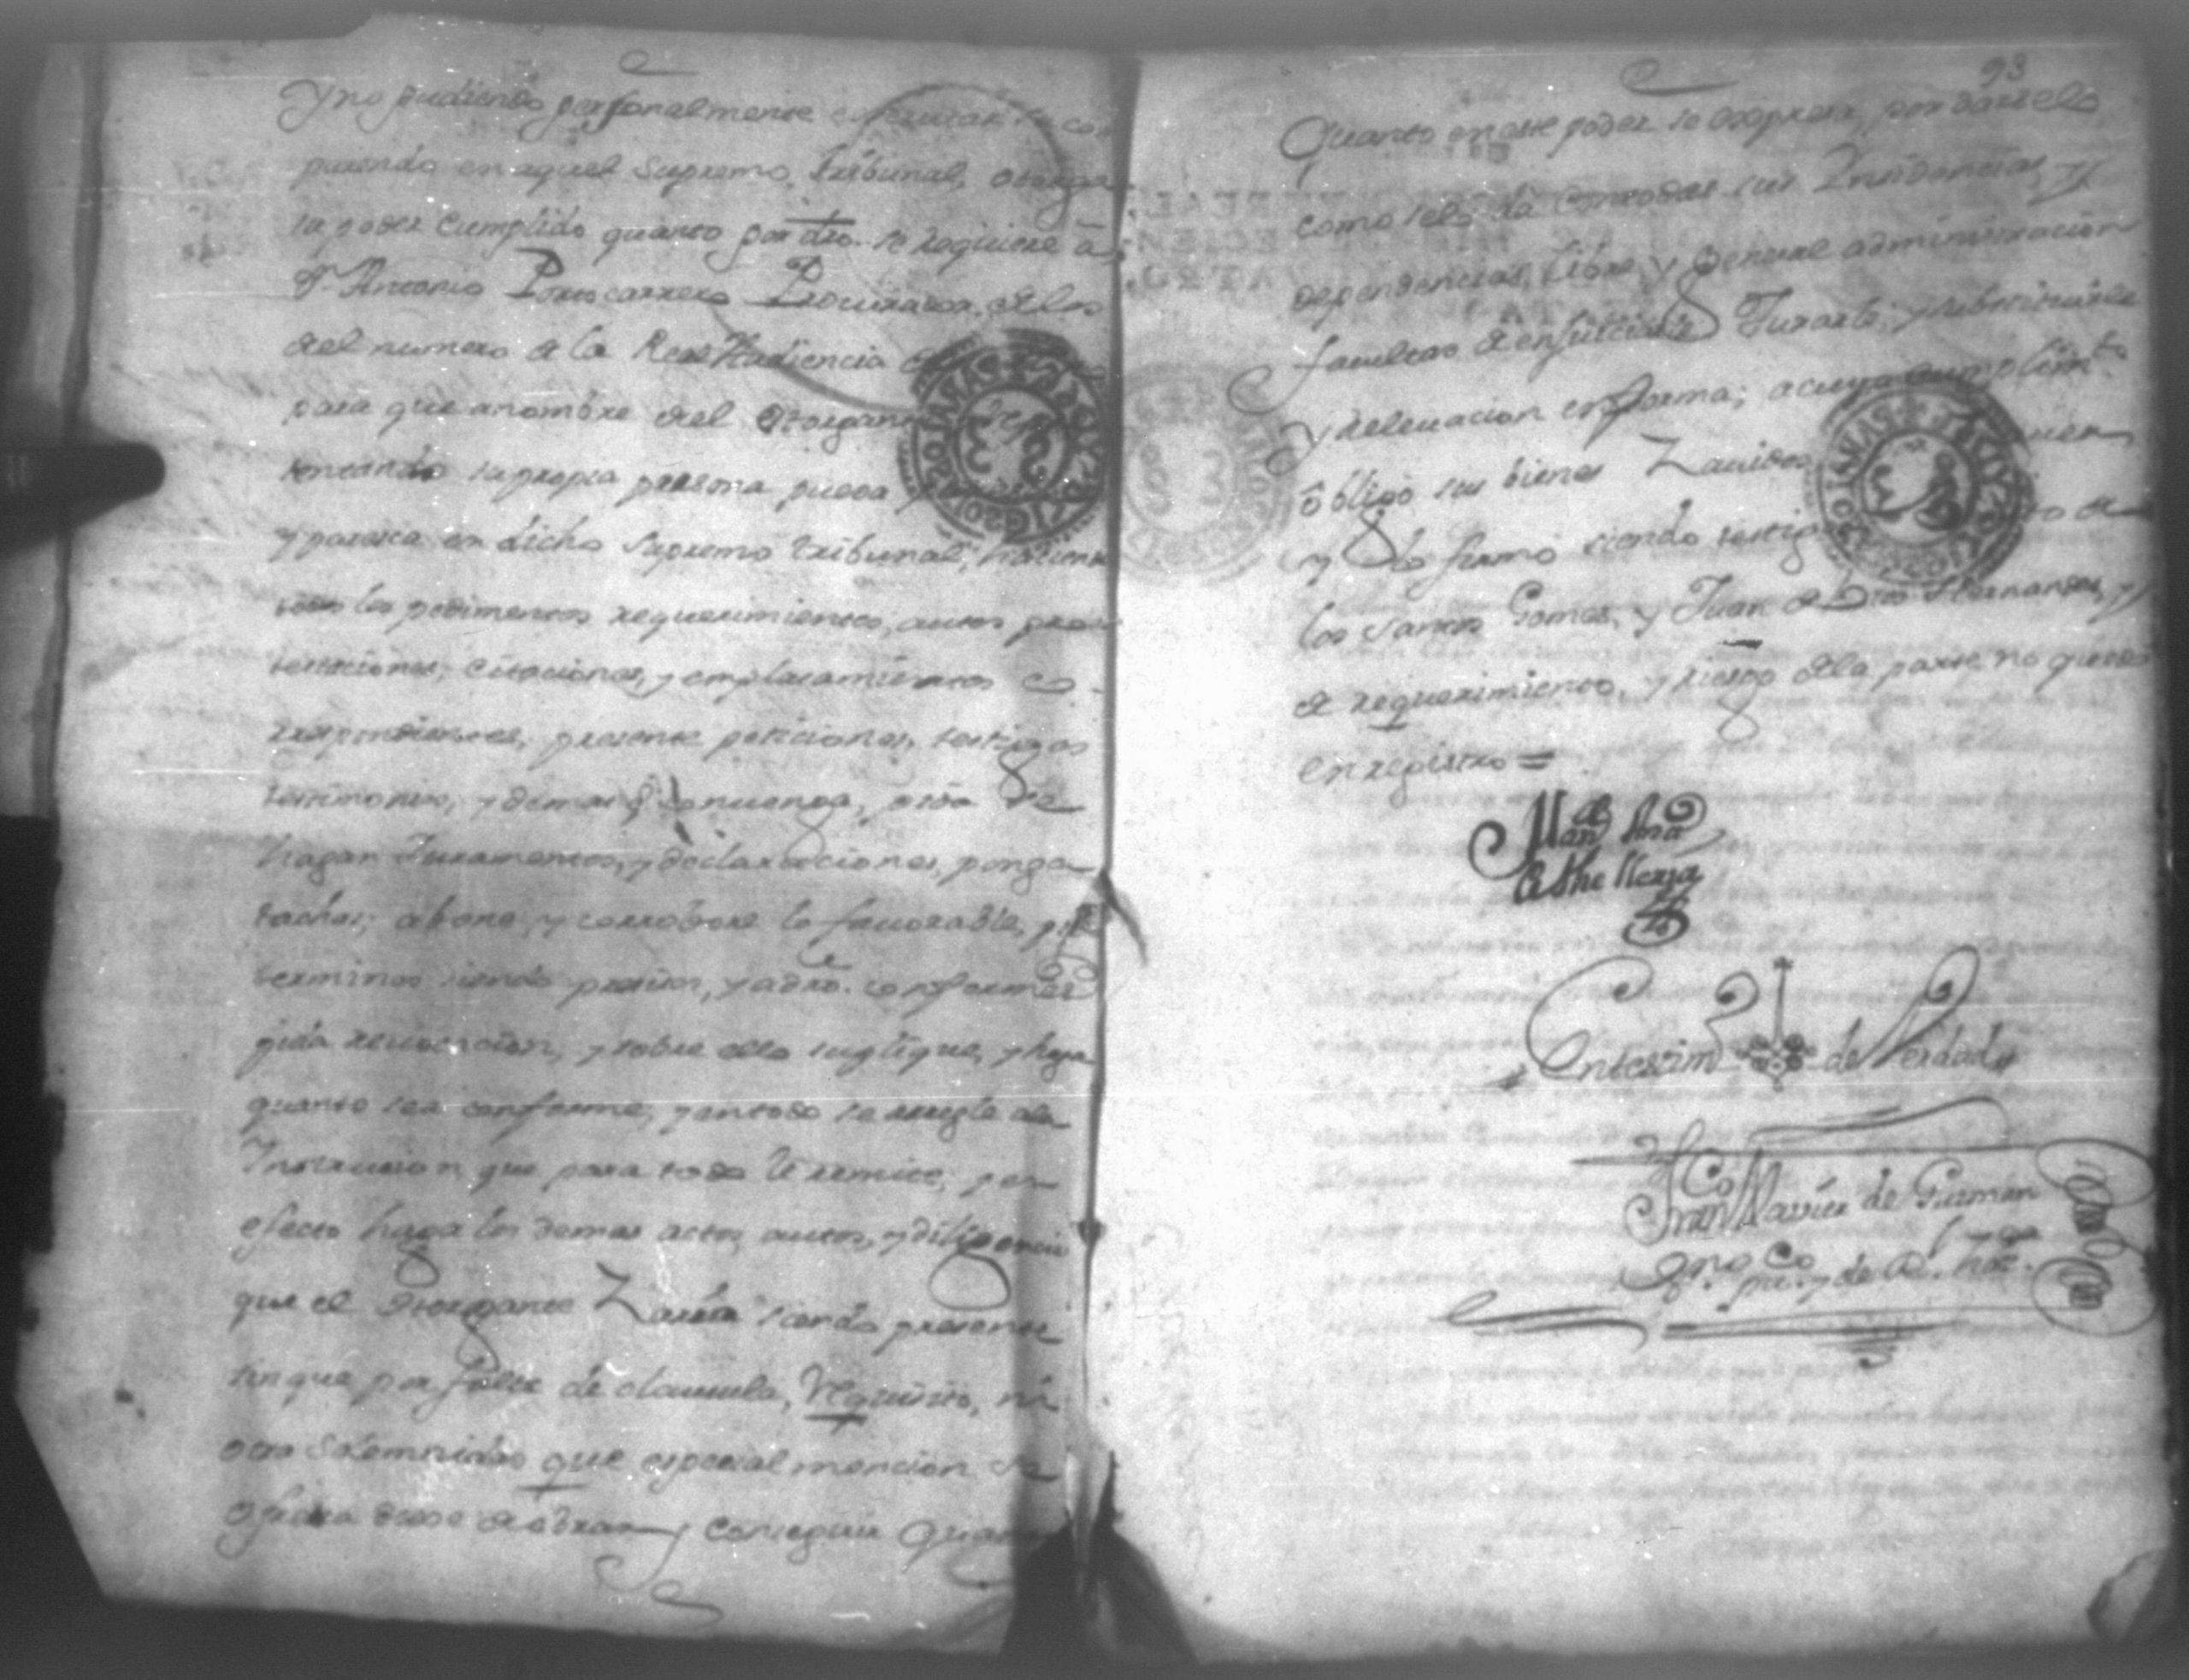 Y no pudiendo personalmente executar su com
parendo en aquel Supremo Tribunal, otorga
su poder cumplido quanto por dro. se requiere â
Dn. Antonio Portocarrero Procurador de los
del numero de la Real Haudiencia de
para que anombre del Otorgante
sentando su propia persona pueda
y paresca en dicho Supremo Tribunal, haciendo
todos los pedimentos requerimientos, autos pro
testaciones, citaciones, y emplasamientos co-
rrespondientes, presente peticiones, testigos
testimonios, y demas q. convenga, pida se
hagan Juramentos, y declaraciones, ponga
tachas, abone, y corrobore lo favorable, pida
terminos siendo presisos, y adro. conformes
pida revocacion, y sobre ello suplique, y haga
quanto sea conforme, y entodo se arregle ala
Instruccion que para todo le remite, y en
efecto haga los demas actos, autos, y diligencias
que el Otorgante Zaría siendo presente
sin que por falta de clausula, requisito, ni
otra solemnidad que especial mencion se
ofresca dexe de obrar y conseguir quanto
93
Quanto en este poder se expresa, pues darselo
como selo da con todas sus Insidencias, y
dependencias, libre, y general administracion
facultad de enjuiciar Jurarlo, y substituirle
y relevacion enforma; acuyo cumplimto
obligó sus bienes Zavidos
y lo firmó siendo testig to de
los Santos Gomes, y Juan de Dios Hernandes, y
de requerimiento, y riesgo dela parte no quedó
en registro =
Man
En testim de Verdad
Franco Xavier de Gusman
Sno. pu. y de